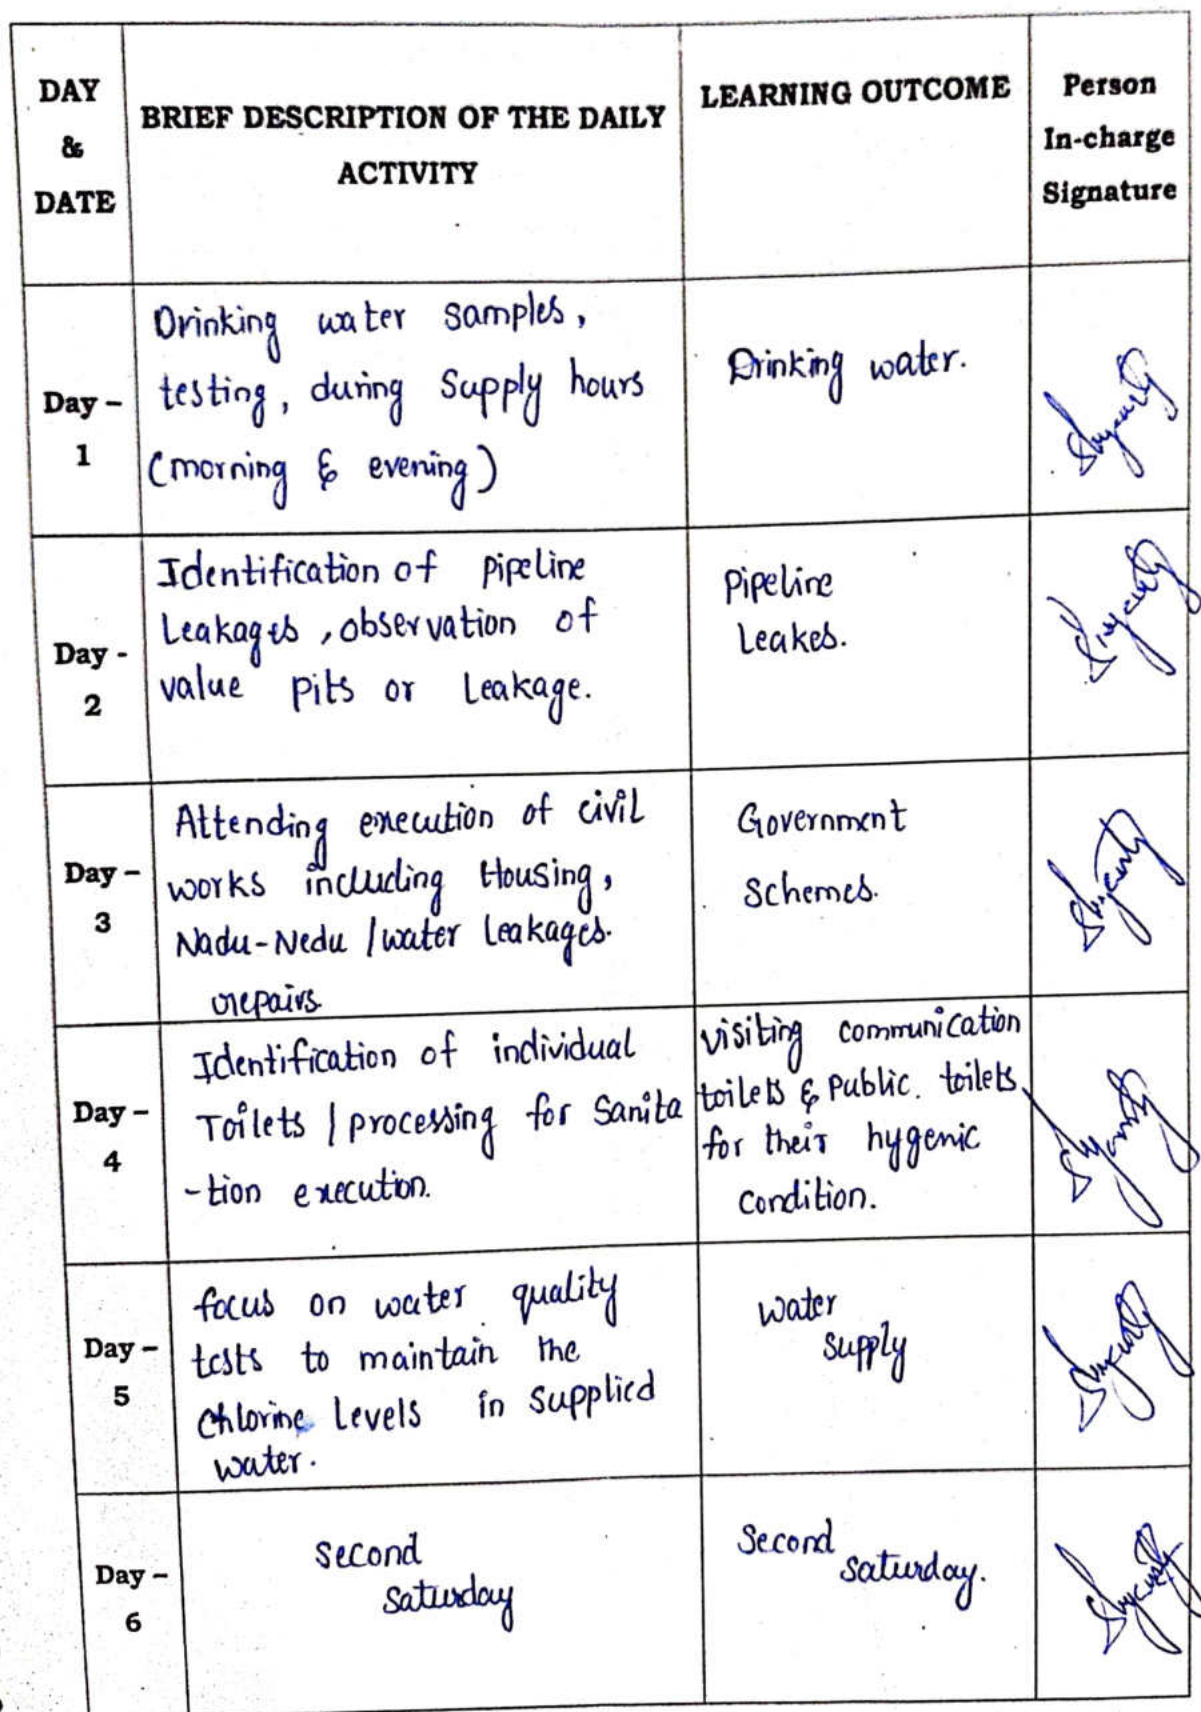 DAY
&
DATE
BRIEF DESCRIPTION OF THE DAILY
ACTIVITY
LEARNING OUTCOME
Person
In-charge
Signature
Day –
1
Drinking water samples,
testing, during Supply hours
(morning & evening)
Drinking water.
Day -
2
Identification of pipeline
Leakages, observation of
value pits or Leakage.
Pipeline
Leakes.
Day –
3
Attending execution of civil
works including Housing,
Nadu-Nedu / water Leakages.
repairs.
Government
Schemes.
Day –
4
Identification of individual
Toilets / processing for Sanita
-tion execution.
visiting communication
toilets & Public. toilets
for their hygenic
Condition.
Day –
5
focus on water quality
tests to maintain the
Chlorine Levels in supplied
water.
water
supply
Day –
6
Second
Saturday
Second
Saturday.